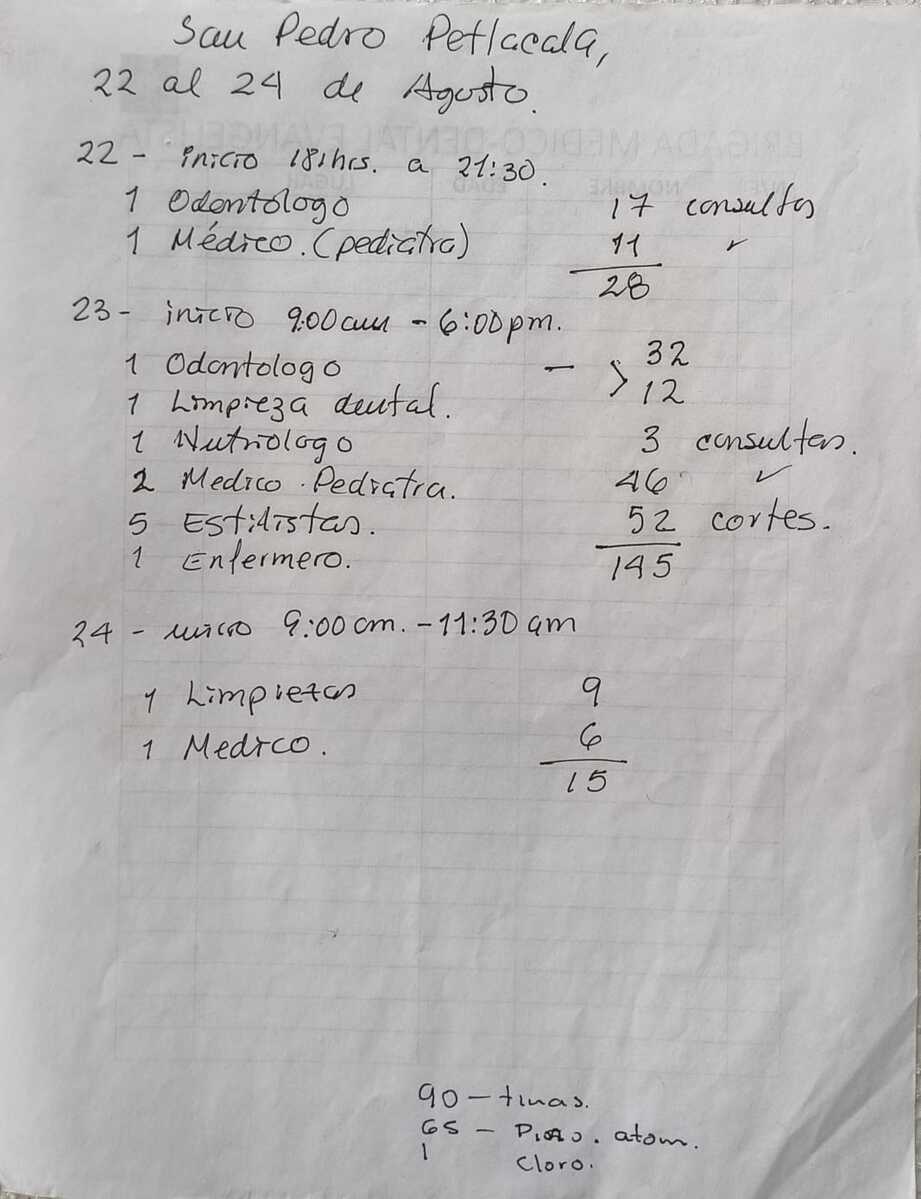 San Pedro Petlacala,
22 al 24 de Agosto.
22 - inicio 18:hrs. a 21:30.
1 Odontólogo 17 consultas
1 Médico. (pediatra) 11 ✓
28
23 - inicio 9:00 am - 6:00 pm.
1 Odontologo — > 32
1 Limpieza dental. 12
1 Nutriologo 3 consultas.
2 Medico. Pediatra. 46 ✓
5 Estilistas. 52 cortes.
1 Enfermero. 145
24 - inicio 9:00 am. - 11:30 am
1 Limpiezas 9
1 Medico. 6
15
90 - tinas.
65 - atom.
1 Cloro.